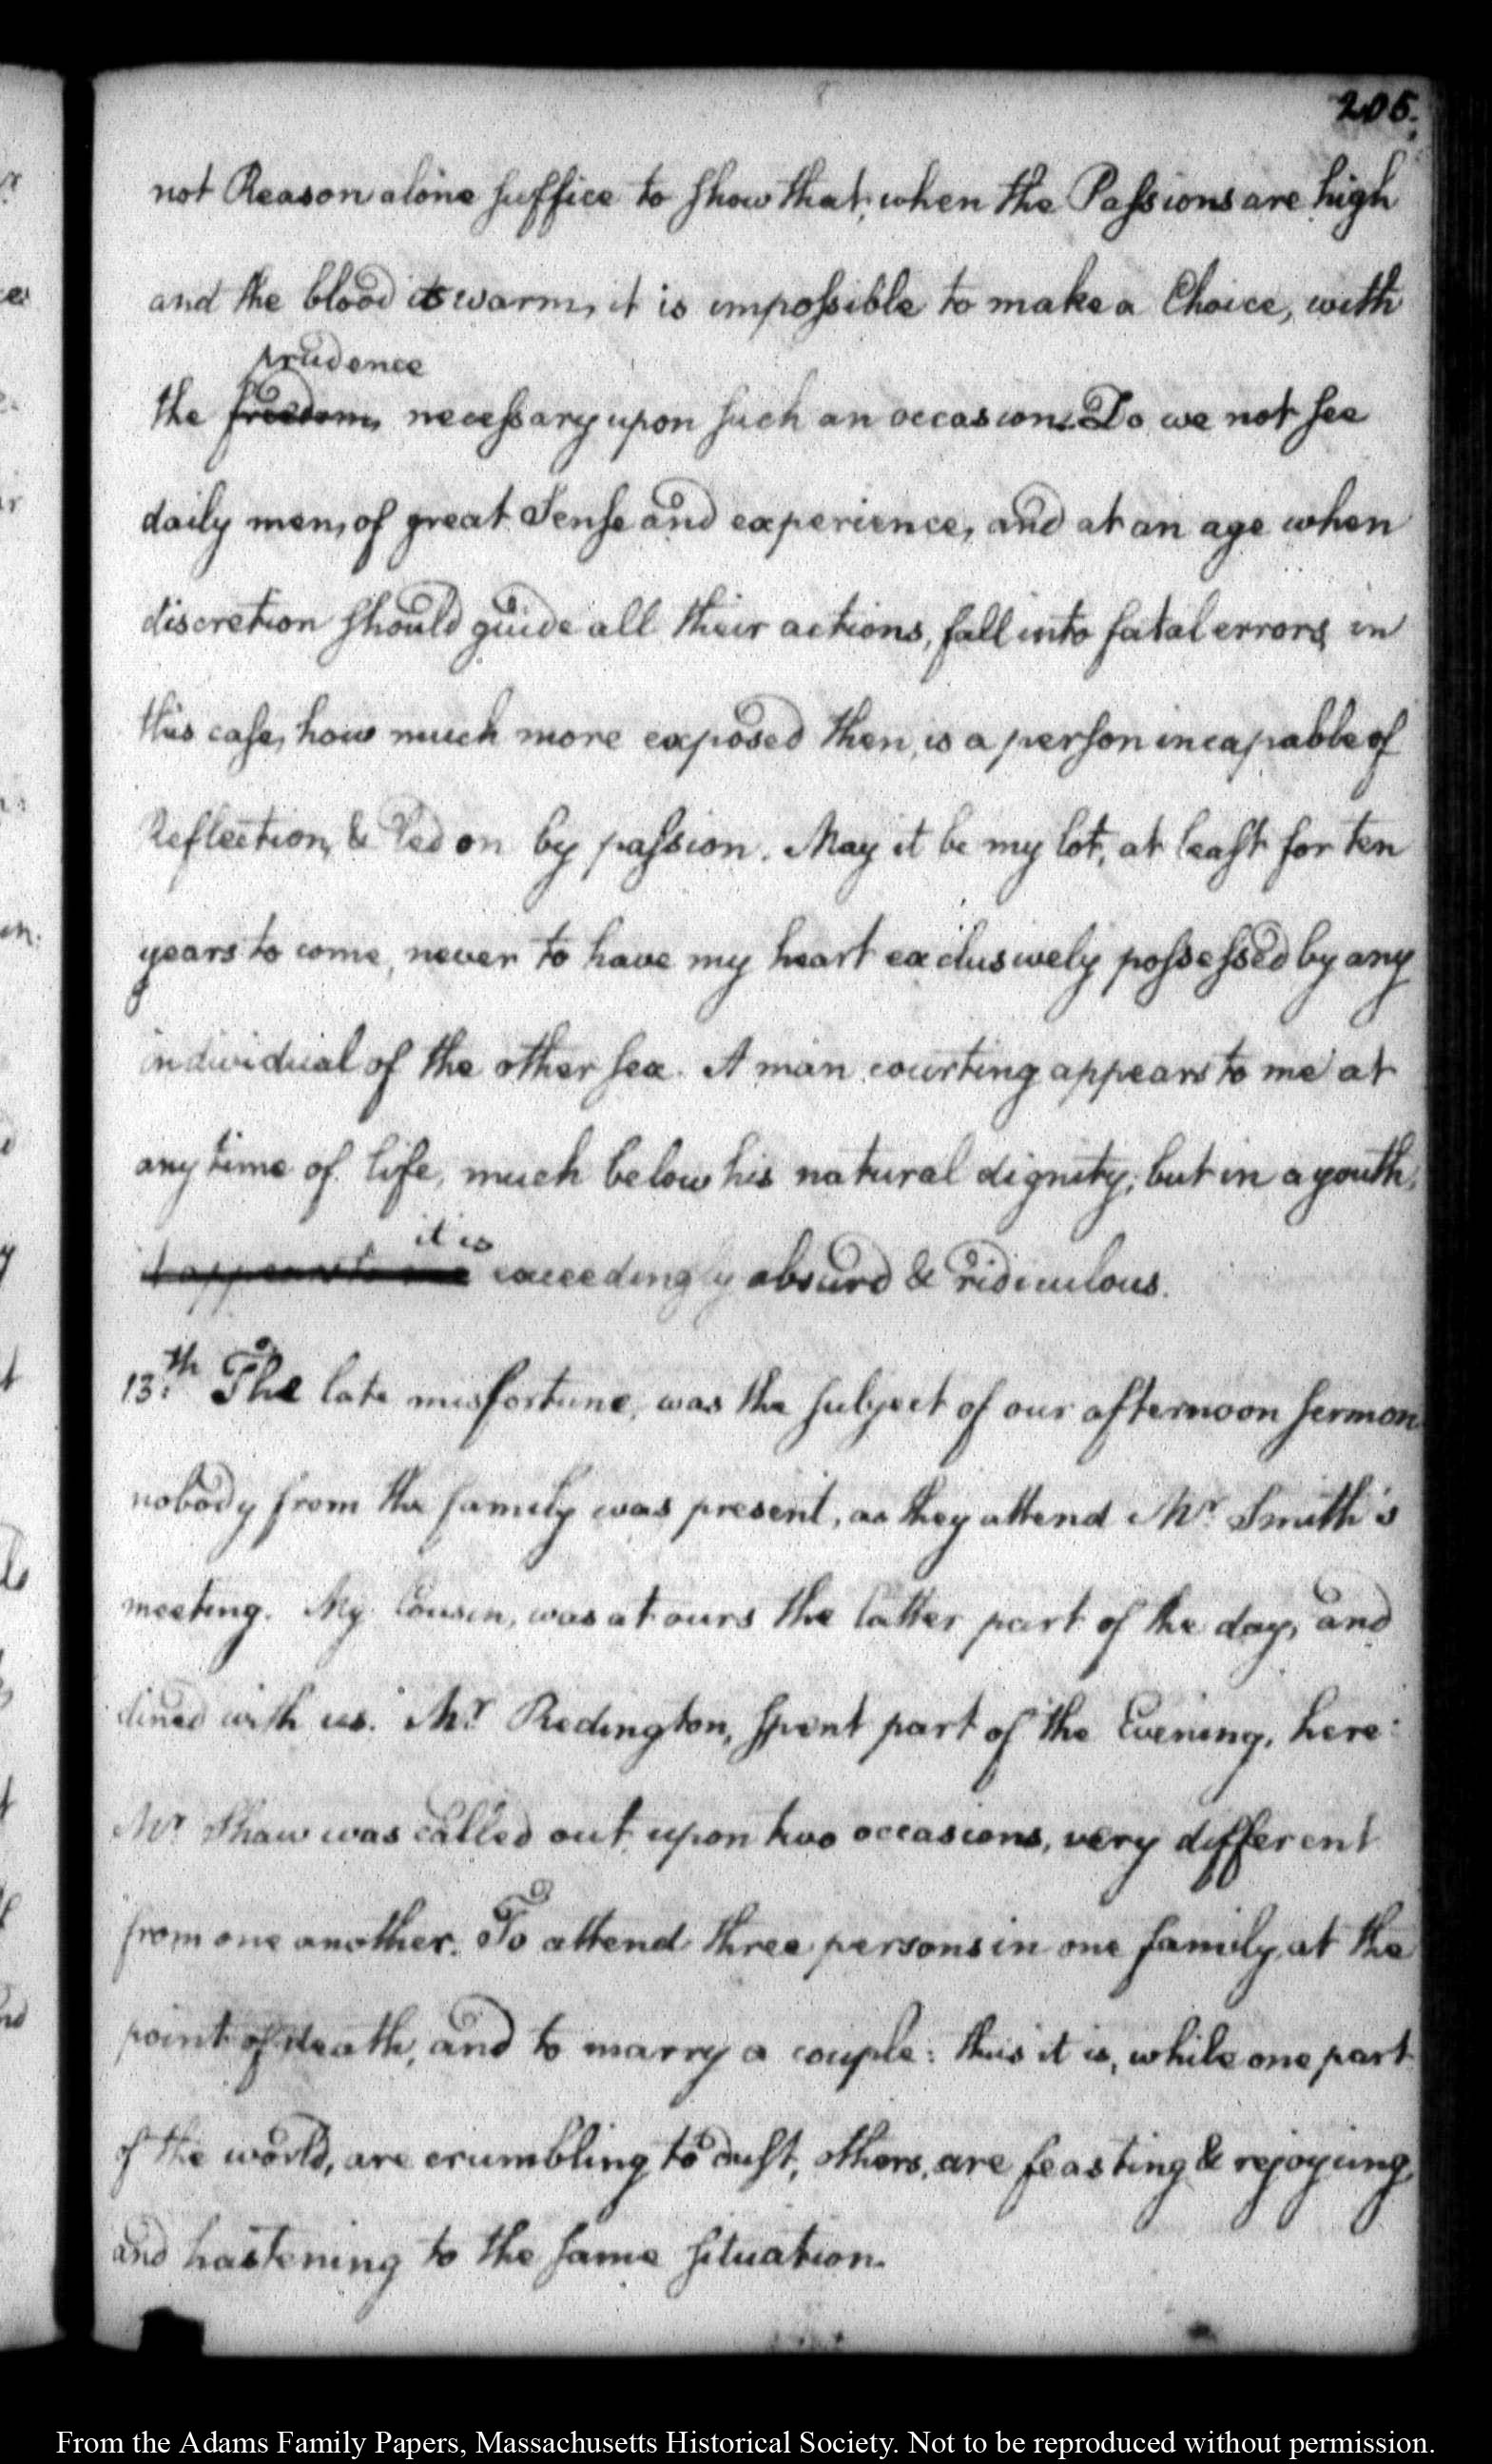 205.
not Reason alone suffice to show that, when the Passions are high
and the blood is warm, it is impossible to make a Choice, with
prudence
the freedom, necessary upon such an occasion. Do we not see
daily men, of great Sense and experience, and at an age when
discretion should guide all their actions, fall into fatal errors, in
this case, how much more exposed then, is a person incapable of
Reflection, & led on by passion. May it be my lot, at least for ten
years to come, never to have my heart exclusively possessed by any
individual of the other sex. A man courting appears to me at
any time of life, much below his natural dignity, but in a youth,
it is
it appears to me exceedingly absurd & ridiculous.
13:th The late misfortune, was the subject of our afternoon sermon
nobody from the family was present, as they attend Mr. Smith's
meeting. My Cousin, was at ours the latter part of the day, and
dined with us. Mr. Redington, spent part of the Evening, here:
Mr. Shaw was called out, upon two occasions, very different
from one another. To attend three persons in one family, at the
point of death, and to marry a couple: thus it is, while one part
of the world, are crumbling to dust, others, are feasting & rejoycing,
and hastening to the same situation.
From the Adams Family Papers, Massachusetts Historical Society. Not to be reproduced without permission.